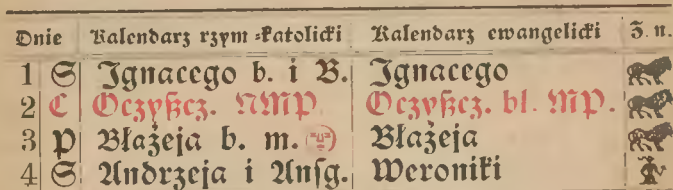 Dnie Kalendarz rzym.=katolicki Kalendarz ewangelicki Z. n.
1 S Ignacego b. i B. Ignacego
2 C Oczyszcz. NMP. Oczyszcz. bl. MP.
3 P Błażeja b. m. Błażeja
4 S Andrzeja i Ansg. Weroniki